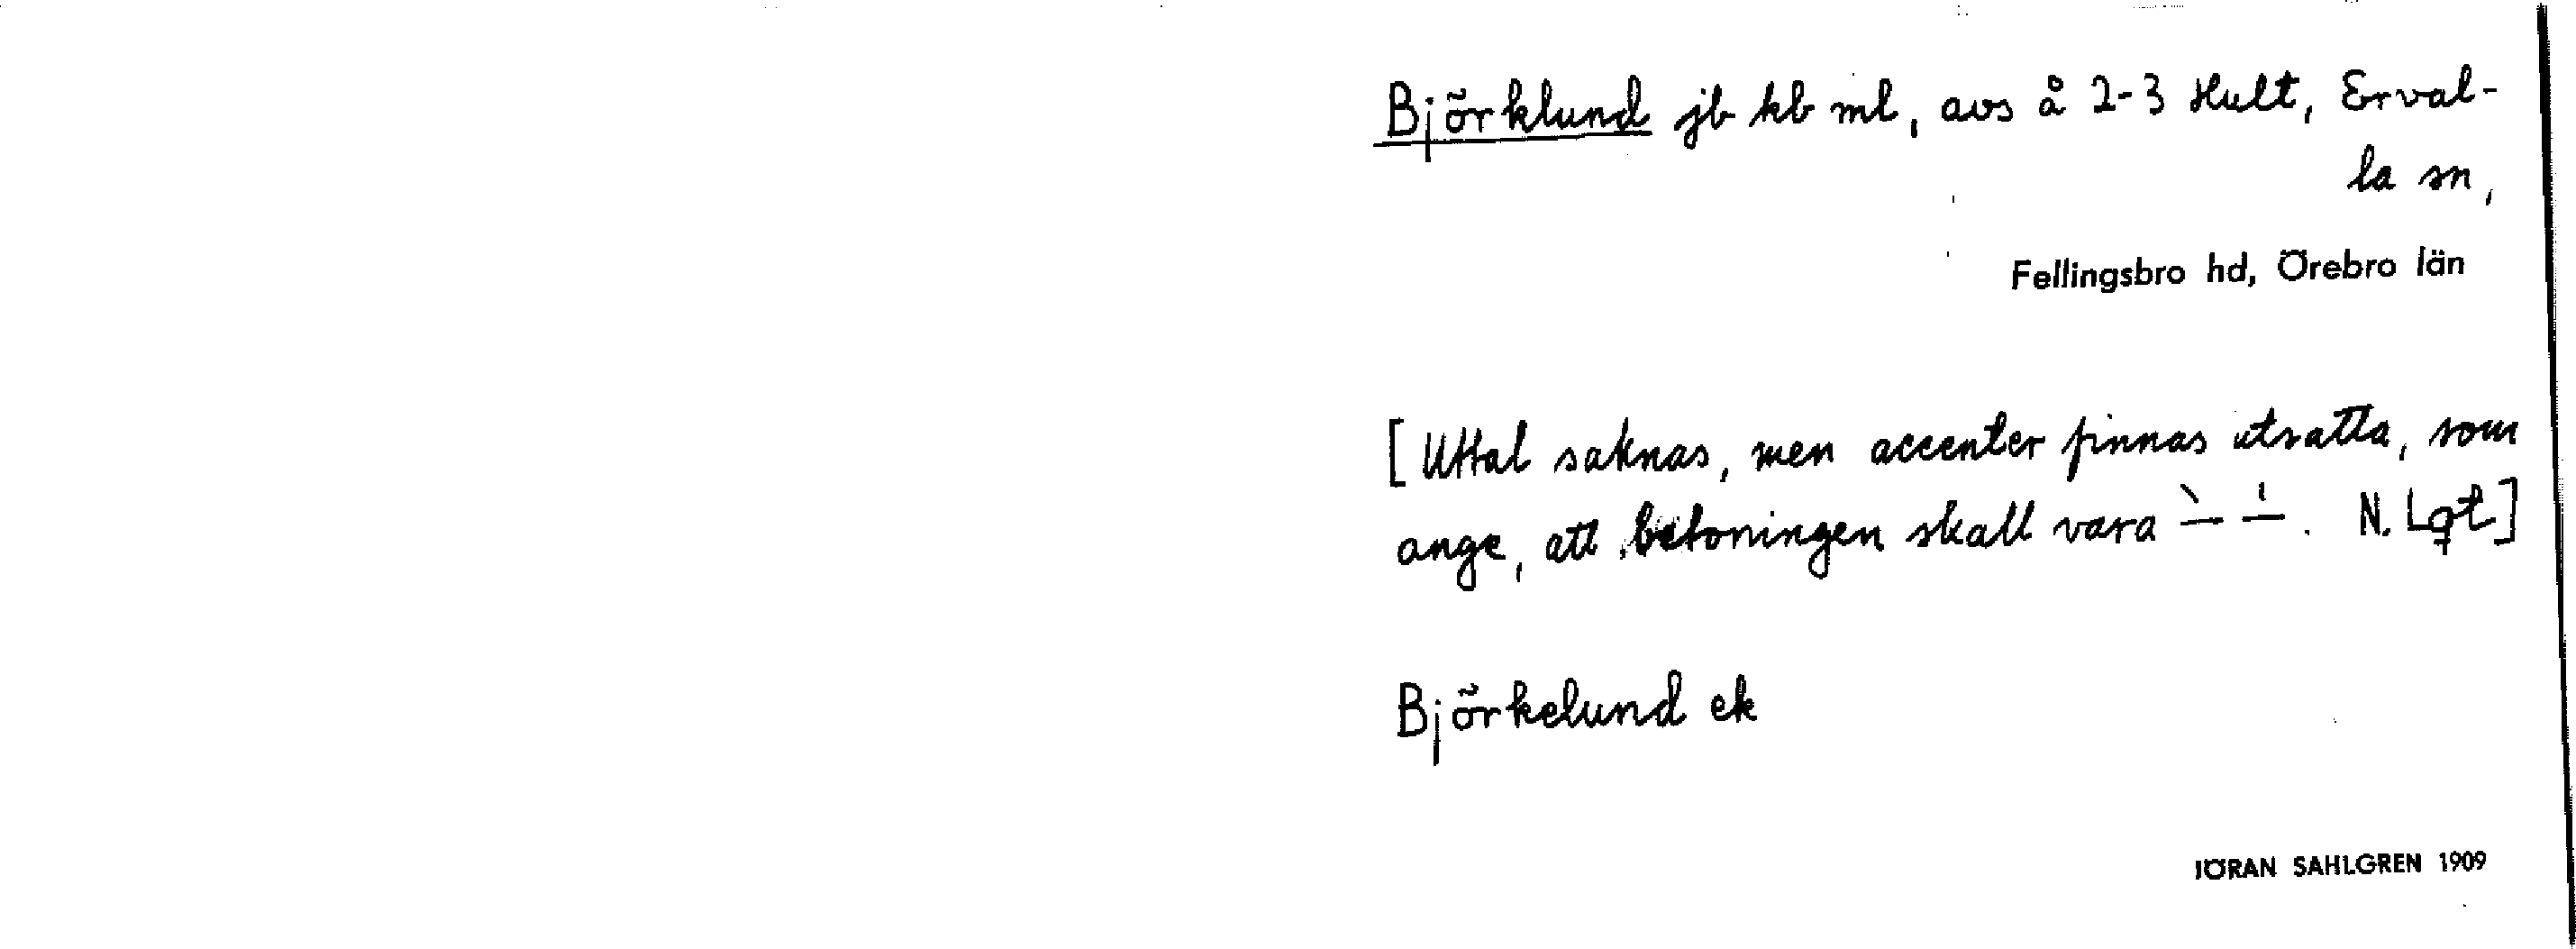 Björklund jb kb ml, avs å 2-3 Hult, Erval-
la sn,
Fellingsbro hd, Örebro län
[Uttal saknas, men accenter finnas utsatta, som
ange, att betoningen skall vara `— '—. N. Lqt]
Björkelund ek
JÖRAN SAHLGREN 1909